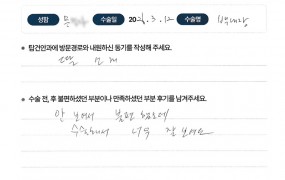 성함 문 수술일 2026.3.12 수술명 백내장
• 탑건안과에 방문경로와 내원하신 동기를 작성해 주세요.
딸 소개
• 수술 전, 후 불편하셨던 부분이나 만족하셨던 부분 후기를 남겨주세요.
안 보여서 불편 했는데
수술해서 너무 잘 보여요